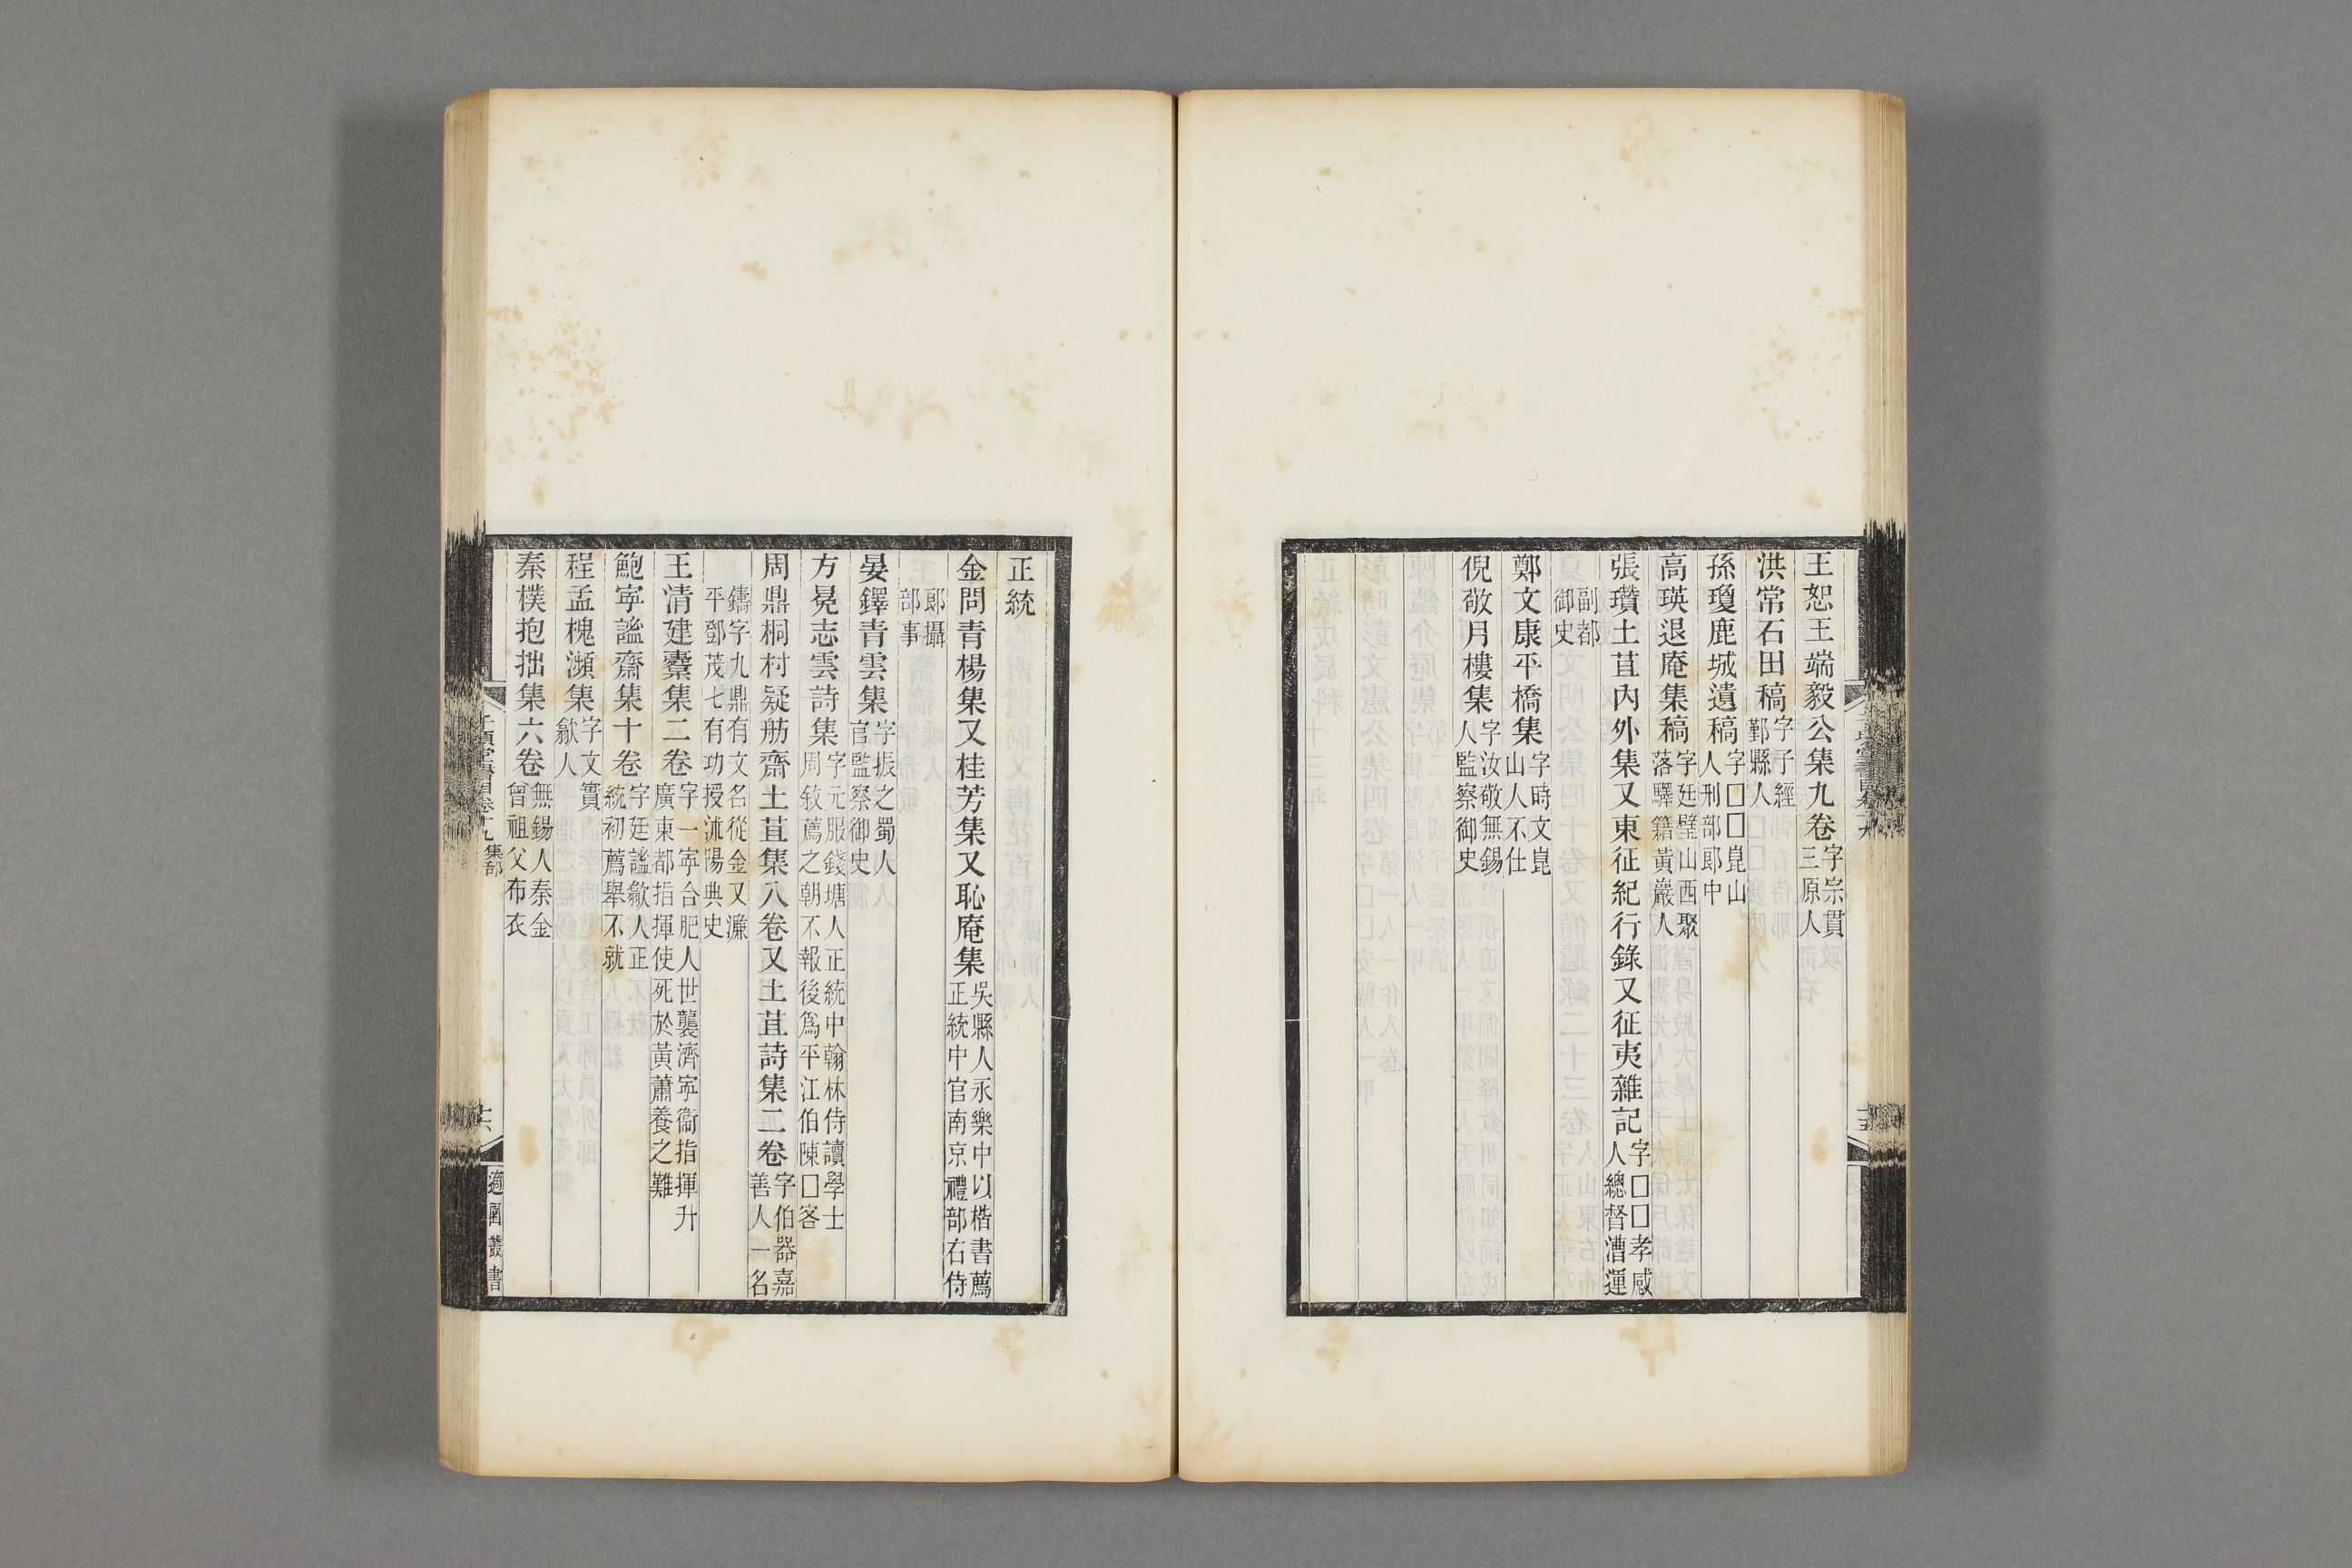 王恕王端毅公集九卷字宗貫三原人
洪常石田稿字子經鄞縣人
孫瓊鹿城遺稿字□□崑山人刑部郎中
高瑛退庵集稿字廷璧山西聚落驛籍黃巖人
張瓚土苴內外集又東征紀行錄又征夷雜記字□□孝感人總督漕運
副都御史
鄭文康平橋集字時文崑山人不仕
倪敬月樓集字汝敬無錫人監察御史
正統
金問青楊集又桂芳集又恥庵集吳縣人永樂中以楷書薦正統中官南京禮部右侍
郎攝部事
晏鐸青雲集字振之蜀人官監察御史
方晃志雲詩集字元服錢塘人正統中翰林侍讀學士周敘薦之朝不報後爲平江伯陳□客
周鼎桐村疑舫齋土苴集八卷又土苴詩集二卷字伯器嘉善人一名
鑄字九鼎有文名從金又濂平鄧茂七有功授沭陽典史
王清建櫜集二卷字一寧合肥人世襲濟寧衞指揮升廣東都指揮使死於黃蕭養之難
鮑寧謐齋集十卷字廷謐歙人正統初薦舉不就
程孟槐瀕集字文實歙人
秦樸抱拙集六卷無錫人秦金曾祖父布衣
千頃堂書目卷十九 集部
十六
適園叢書